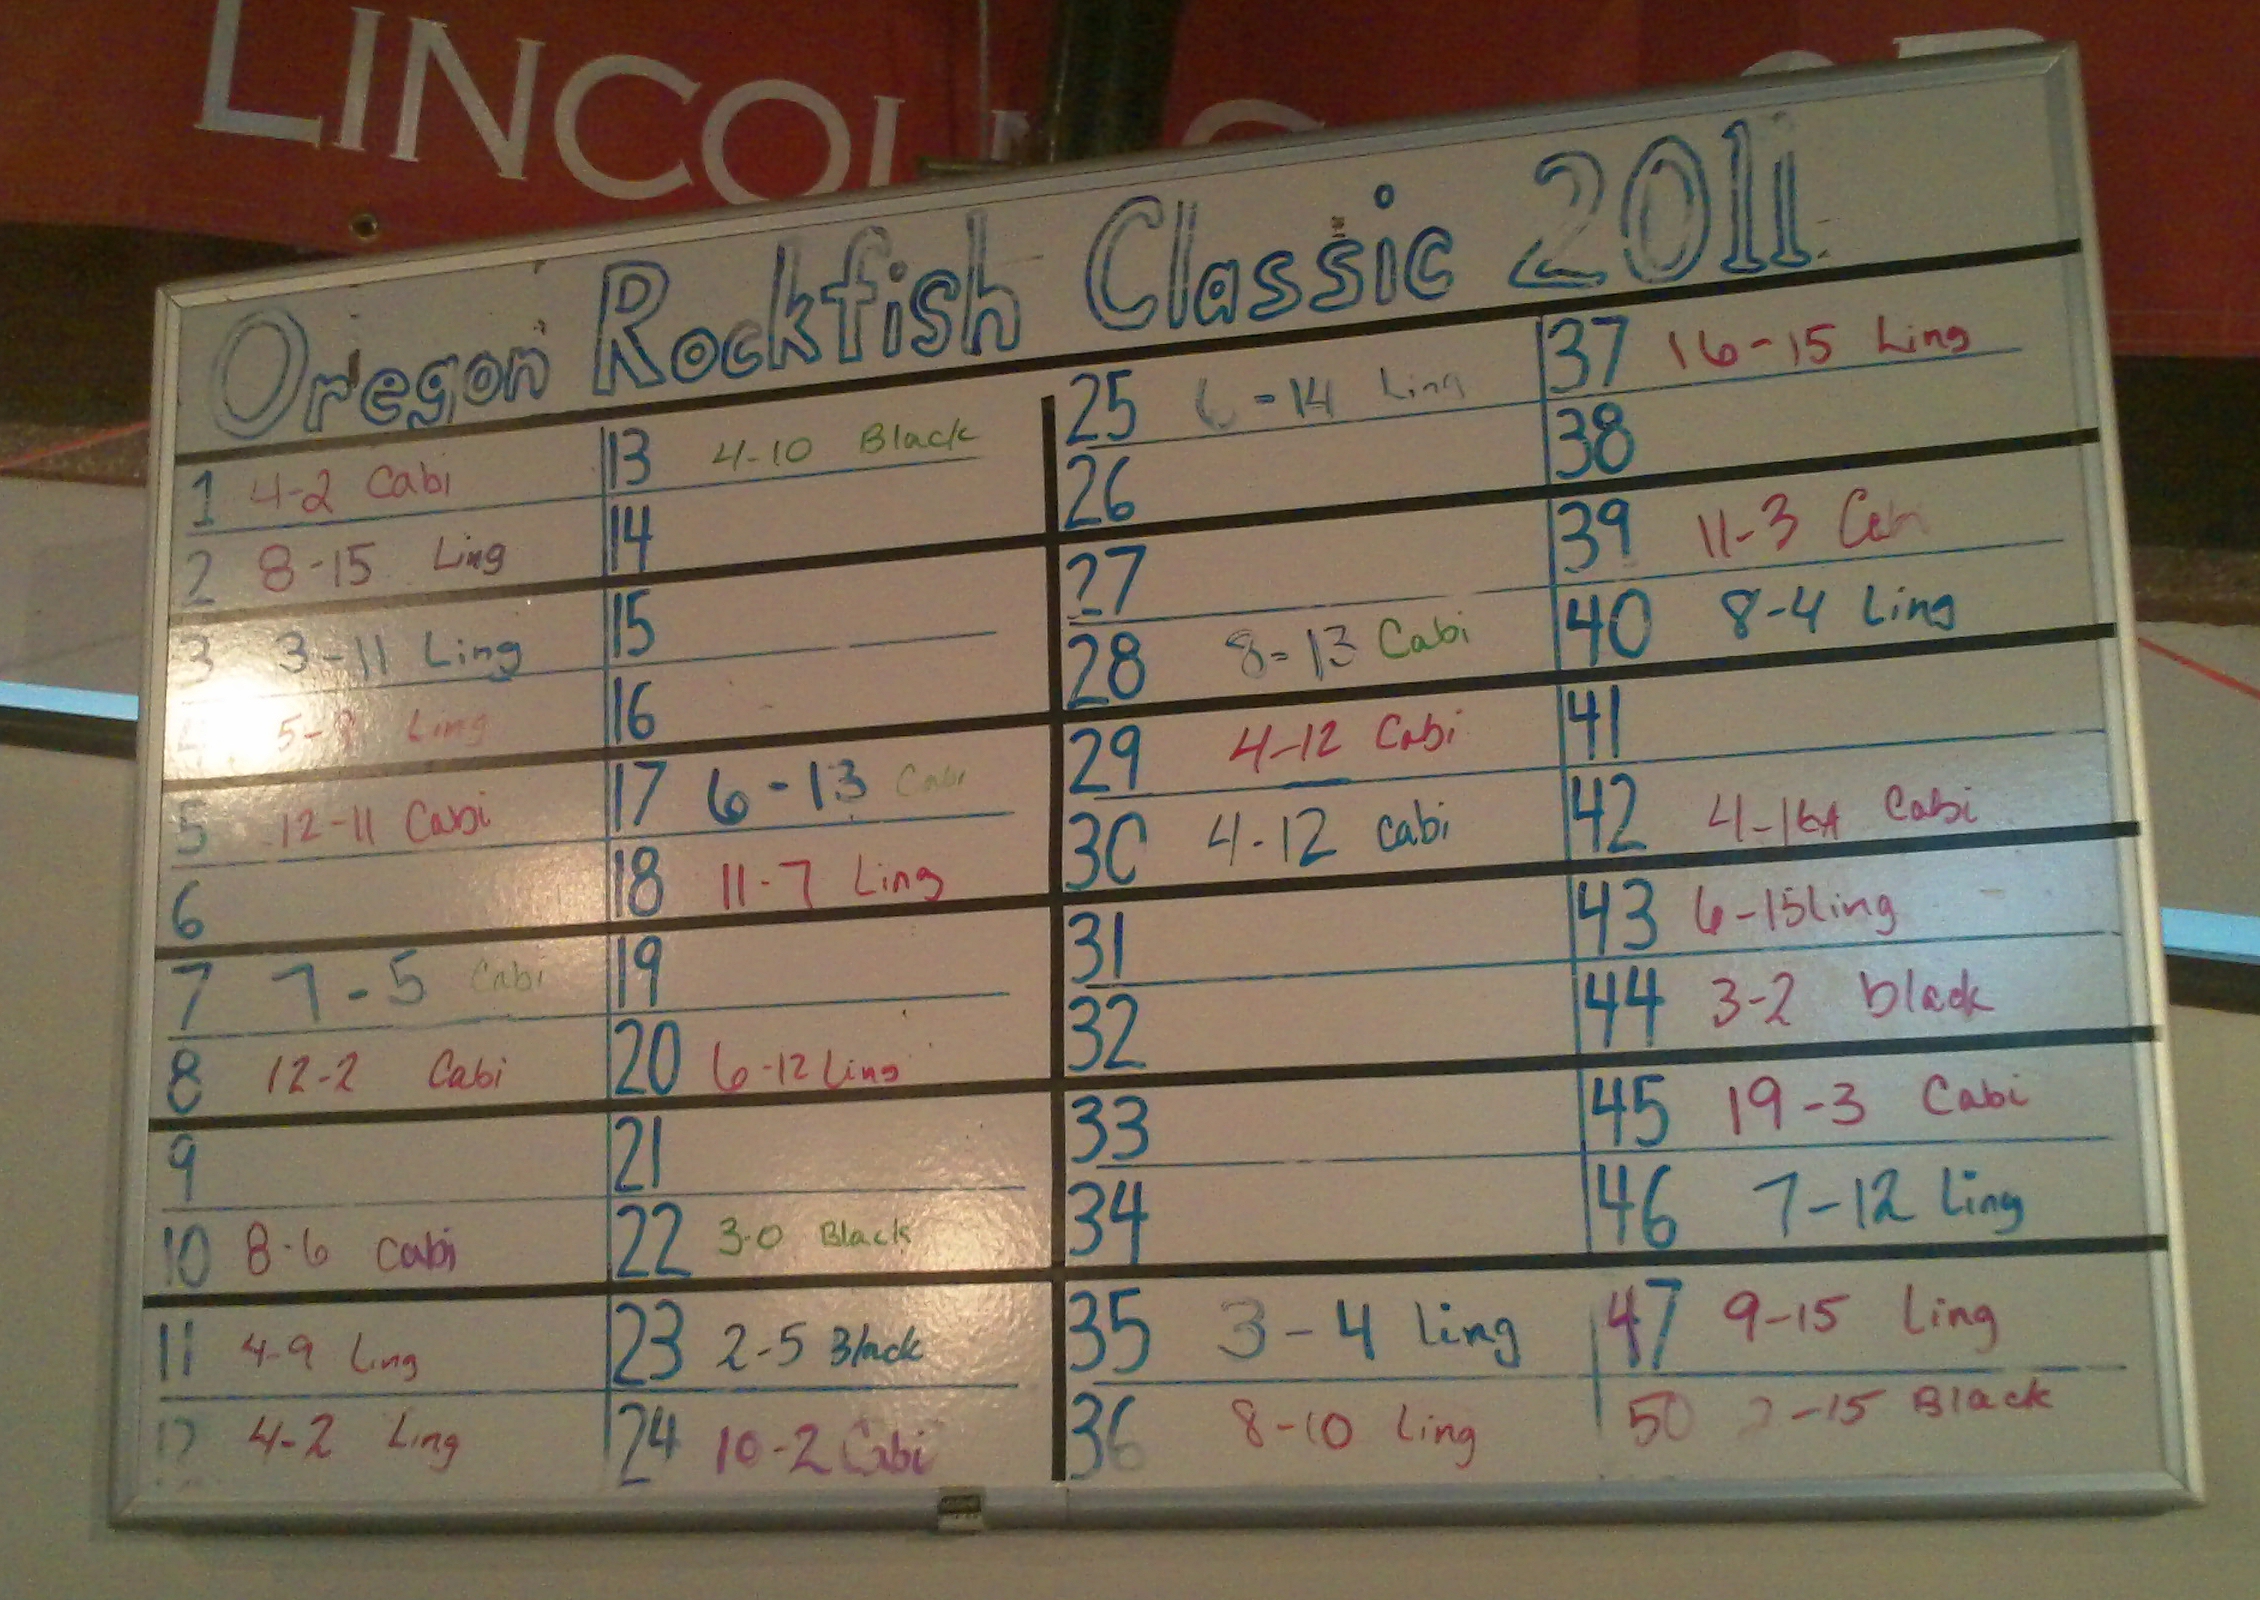 LINCOL
Oregon Rockfish Classic 2011
1 4-2 Cabi
2 8-15 Ling
3 3-11 Ling
4 Ling
5 12-11 Cabi
6
7 7-5 Cabi
8 12-2 Cabi
9
10 8-6 Cabi
11 4-9 Ling
12 4-2 Ling
13 4-10 Black
14
15
16
17 6-13 Cabi
18 11-7 Ling
19
20 6-12 Ling
21
22 3-0 Black
23 2-5 Black
24 10-2 Cabi
25 6-14 Ling
26
27
28 8-13 Cabi
29 4-12 Cabi
30 4-12 Cabi
31
32
33
34
35 3-4 Ling
36 8-10 Ling
37 16-15 Ling
38
39 11-3
40 8-4 Ling
41
42 Cabi
43 6-15 Ling
44 3-2 black
45 19-3 Cabi
46 7-12 Ling
47 9-15 Ling
50 Black